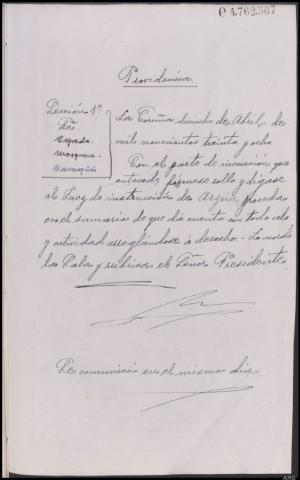 C 4.762.567
Providencia.
Sección 1ª
La Coruña de Abril de
mil novecientos treinta y ocho
Con el parte de incoación que
antecede fórmese rollo y dígase
al Juez de instrucción de Arzúa proceda
en el sumario de que da cuenta con todo celo
y actividad arreglándose a derecho.- Lo acordó
la Sala y rubrica el Señor Presidente.
Se comunicó en el mismo día.
ARG